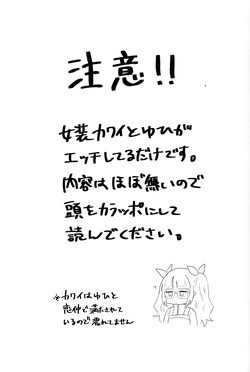 注意!!
女装カワイとゆひが
エッチしてるだけです。
内容はほぼ無いので
頭をカラッポにして
読んでください。
※カワイはゆひと
で満たされて
いるので濡れてません